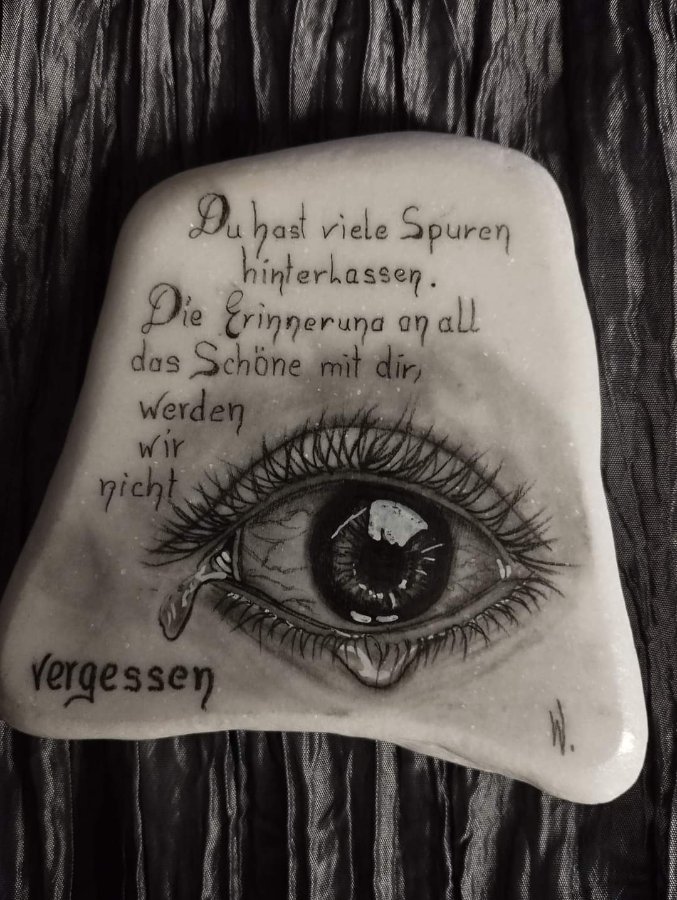 Du hast viele Spuren
hinterlassen.
Die Erinnerung an all
das Schöne mit dir,
werden
wir
nicht
vergessen
W.